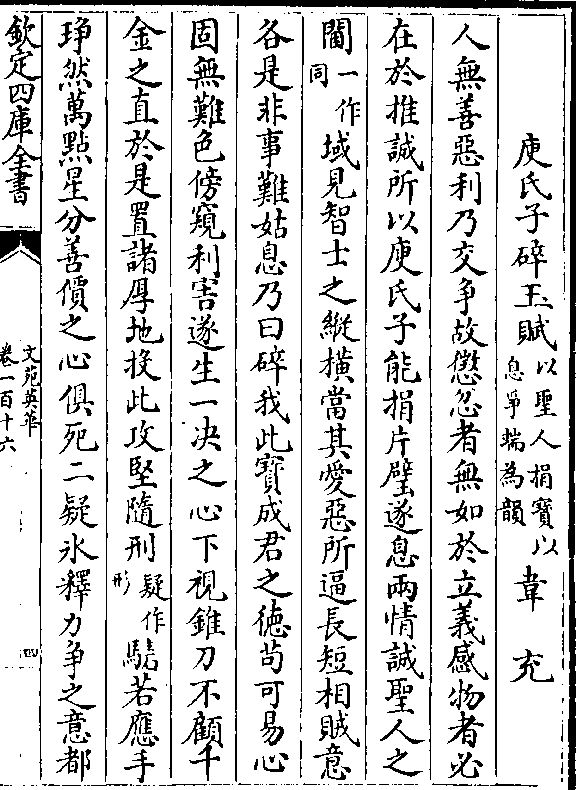 庾氏子碎玉賦以聖人捐寶以息爭端為韻 韋充
人無善惡利乃交争故懲忿者無如於立義感物者必
在於推誠所以庾氏子能捐片璧遂息兩情誠聖人之
閫一作同域見智士之縱横當其愛惡所逼長短相賊意
各是非事難姑息乃曰碎我此寶成君之徳苟可易心
固無難色傍窺利害遂生一決之心下視錐刀不顧千
金之直於是置諸厚地投此攻堅隨刑疑作形騞若應手
琤然萬㸃星分善價之心俱死二疑氷釋力争之意都
欽定四庫全書
文苑英華
卷一百十六
四